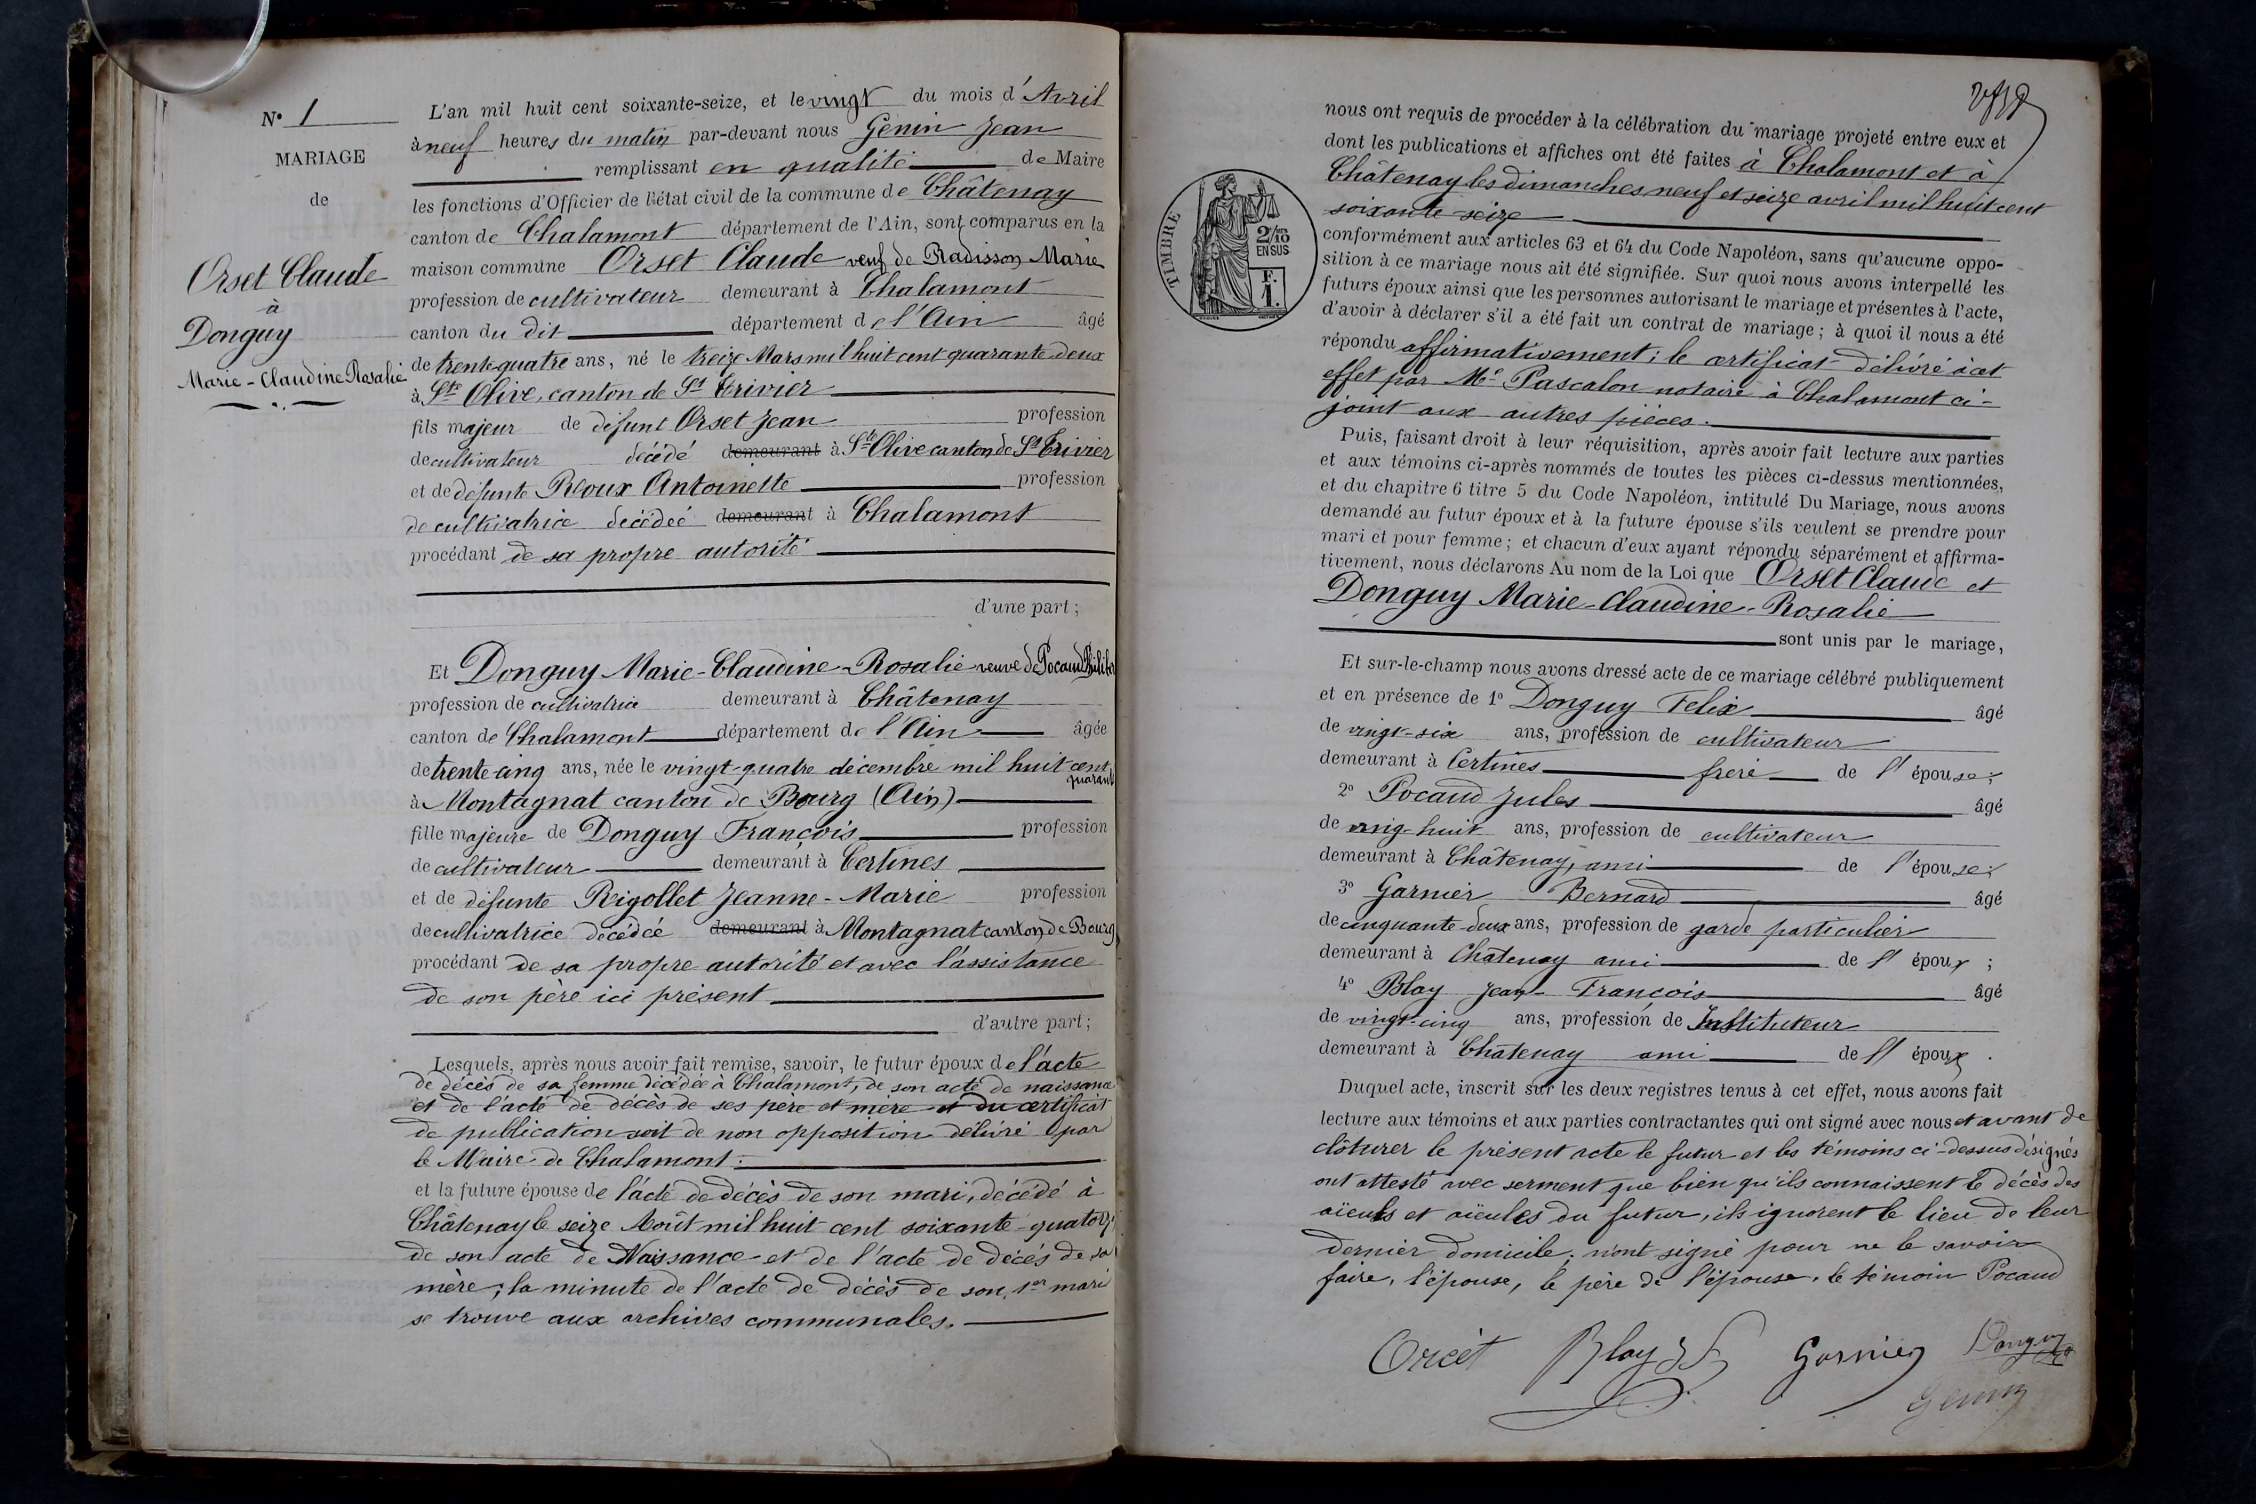 N° 1
MARIAGE
de
Orset Claude
à
Donguy
Marie-Claudine Rosalie
L'an mil huit cent soixante-seize, et le vingt du mois d'Avril
à neuf heures du matin par-devant nous Genin Jean
remplissant en qualité de Maire
les fonctions d'Officier de l'état civil de la commune de Châtenay
canton de Chalamont département de l'Ain, sont comparus en la
maison commune Orset Claude veuf de Radisson Marie
profession de cultivateur demeurant à Chalamont
canton du dit département de l'Ain âgé
de trente-quatre ans, né le treize Mars mil huit cent quarante deux
à Ste Olive, canton de St Trivier
fils majeur de défunt Orset Jean profession
de cultivateur décédé demeurant à Ste Olive canton de St Trivier
et de défunte Roux Antoinette profession
de cultivatrice decédeé demeurant à Chalamont
procédant de sa propre autorité
d'une part ;
Et Donguy Marie-Claudine-Rosalie veuve de Pocaud Philib
profession de cultivatrice demeurant à Châtenay
canton de Chalamont département de l'Ain âgée
de trente-cinq ans, née le vingt-quatre décembre mil huit cent
quarante
à Montagnat canton de Bourg (Ain)
fille majeure de Donguy François profession
de cultivateur demeurant à Certines
et de défunte Rigollet Jeanne-Marie profession
de cultivatrice décédée demeurant à Montagnat canton de Bourg
procédant de sa propre autorité et avec l'assistance
de son père ici présent
d'autre part ;
Lesquels, après nous avoir fait remise, savoir, le futur époux de l'acte
de décès de sa femme décédée à Chalamont, de son acte de naissance
et de l'acte de décès de ses père et mère et du certificat
de publication soit de non opposition délivré par
le Maire de Chalamont :
et la future épouse de l'acte de décès de son mari, décédé à
Châtenay le seize Août mil huit cent soixante-quatorze
de son acte de Naissance et de l'acte de décès de sa
mère ; la minute de l'acte de décès de son 1er mari
se trouve aux archives communales.
nous ont requis de procéder à la célébration du mariage projeté entre eux et
dont les publications et affiches ont été faites à Chalamont et à
Châtenay les dimanches neuf et seize avril mil huit cent
soixante-seize
TIMBRE
2/10
EN SUS
F.
1.
conformément aux articles 63 et 64 du Code Napoléon, sans qu'aucune oppo-
sition à ce mariage nous ait été signifiée. Sur quoi nous avons interpellé les
futurs époux ainsi que les personnes autorisant le mariage et présentes à l'acte,
d'avoir à déclarer s'il a été fait un contrat de mariage ; à quoi il nous a été
répondu affirmativement ; le certificat délivré à cet
effet par Me Pascalon notaire à Chalamont ci-
joint aux autres pièces.
Puis, faisant droit à leur réquisition, après avoir fait lecture aux parties
et aux témoins ci-après nommés de toutes les pièces ci-dessus mentionnées,
et du chapitre 6 titre 5 du Code Napoléon, intitulé Du Mariage, nous avons
demandé au futur époux et à la future épouse s'ils veulent se prendre pour
mari et pour femme ; et chacun d'eux ayant répondu séparément et affirma-
tivement, nous déclarons Au nom de la Loi que Orset Claude et
Donguy Marie-Claudine-Rosalie
sont unis par le mariage,
Et sur-le-champ nous avons dressé acte de ce mariage célébré publiquement
et en présence de 1° Donguy Felix âgé
de vingt-six ans, profession de cultivateur
demeurant à Certines frere de l'épouse ;
2° Pocaud Jules âgé
de vinig-huit ans, profession de cultivateur
demeurant à Châtenay, ami de l'épouse ;
3° Garnier Bernard âgé
de cinquante-deux ans, profession de garde particulier
demeurant à Châtenay ami de l'époux ;
4° Blay Jean-François âgé
de vingt-cinq ans, profession de Instituteur
demeurant à Châtenay ami de l'époux .
Duquel acte, inscrit sur les deux registres tenus à cet effet, nous avons fait
lecture aux témoins et aux parties contractantes qui ont signé avec nous et avant de
clôturer le présent acte le futur et les témoins ci-dessus désignés
ont attesté avec serment que bien qu'ils connaissent le décès des
aïeuls et aïeules du futur, ils ignorent le lieu de leur
dernier domicile ; n'ont signé pour ne le savoir
faire, l'épouse, le père de l'épouse, le témoin Pocaud
Orcet Blay J F Garnier Donguy
Genin